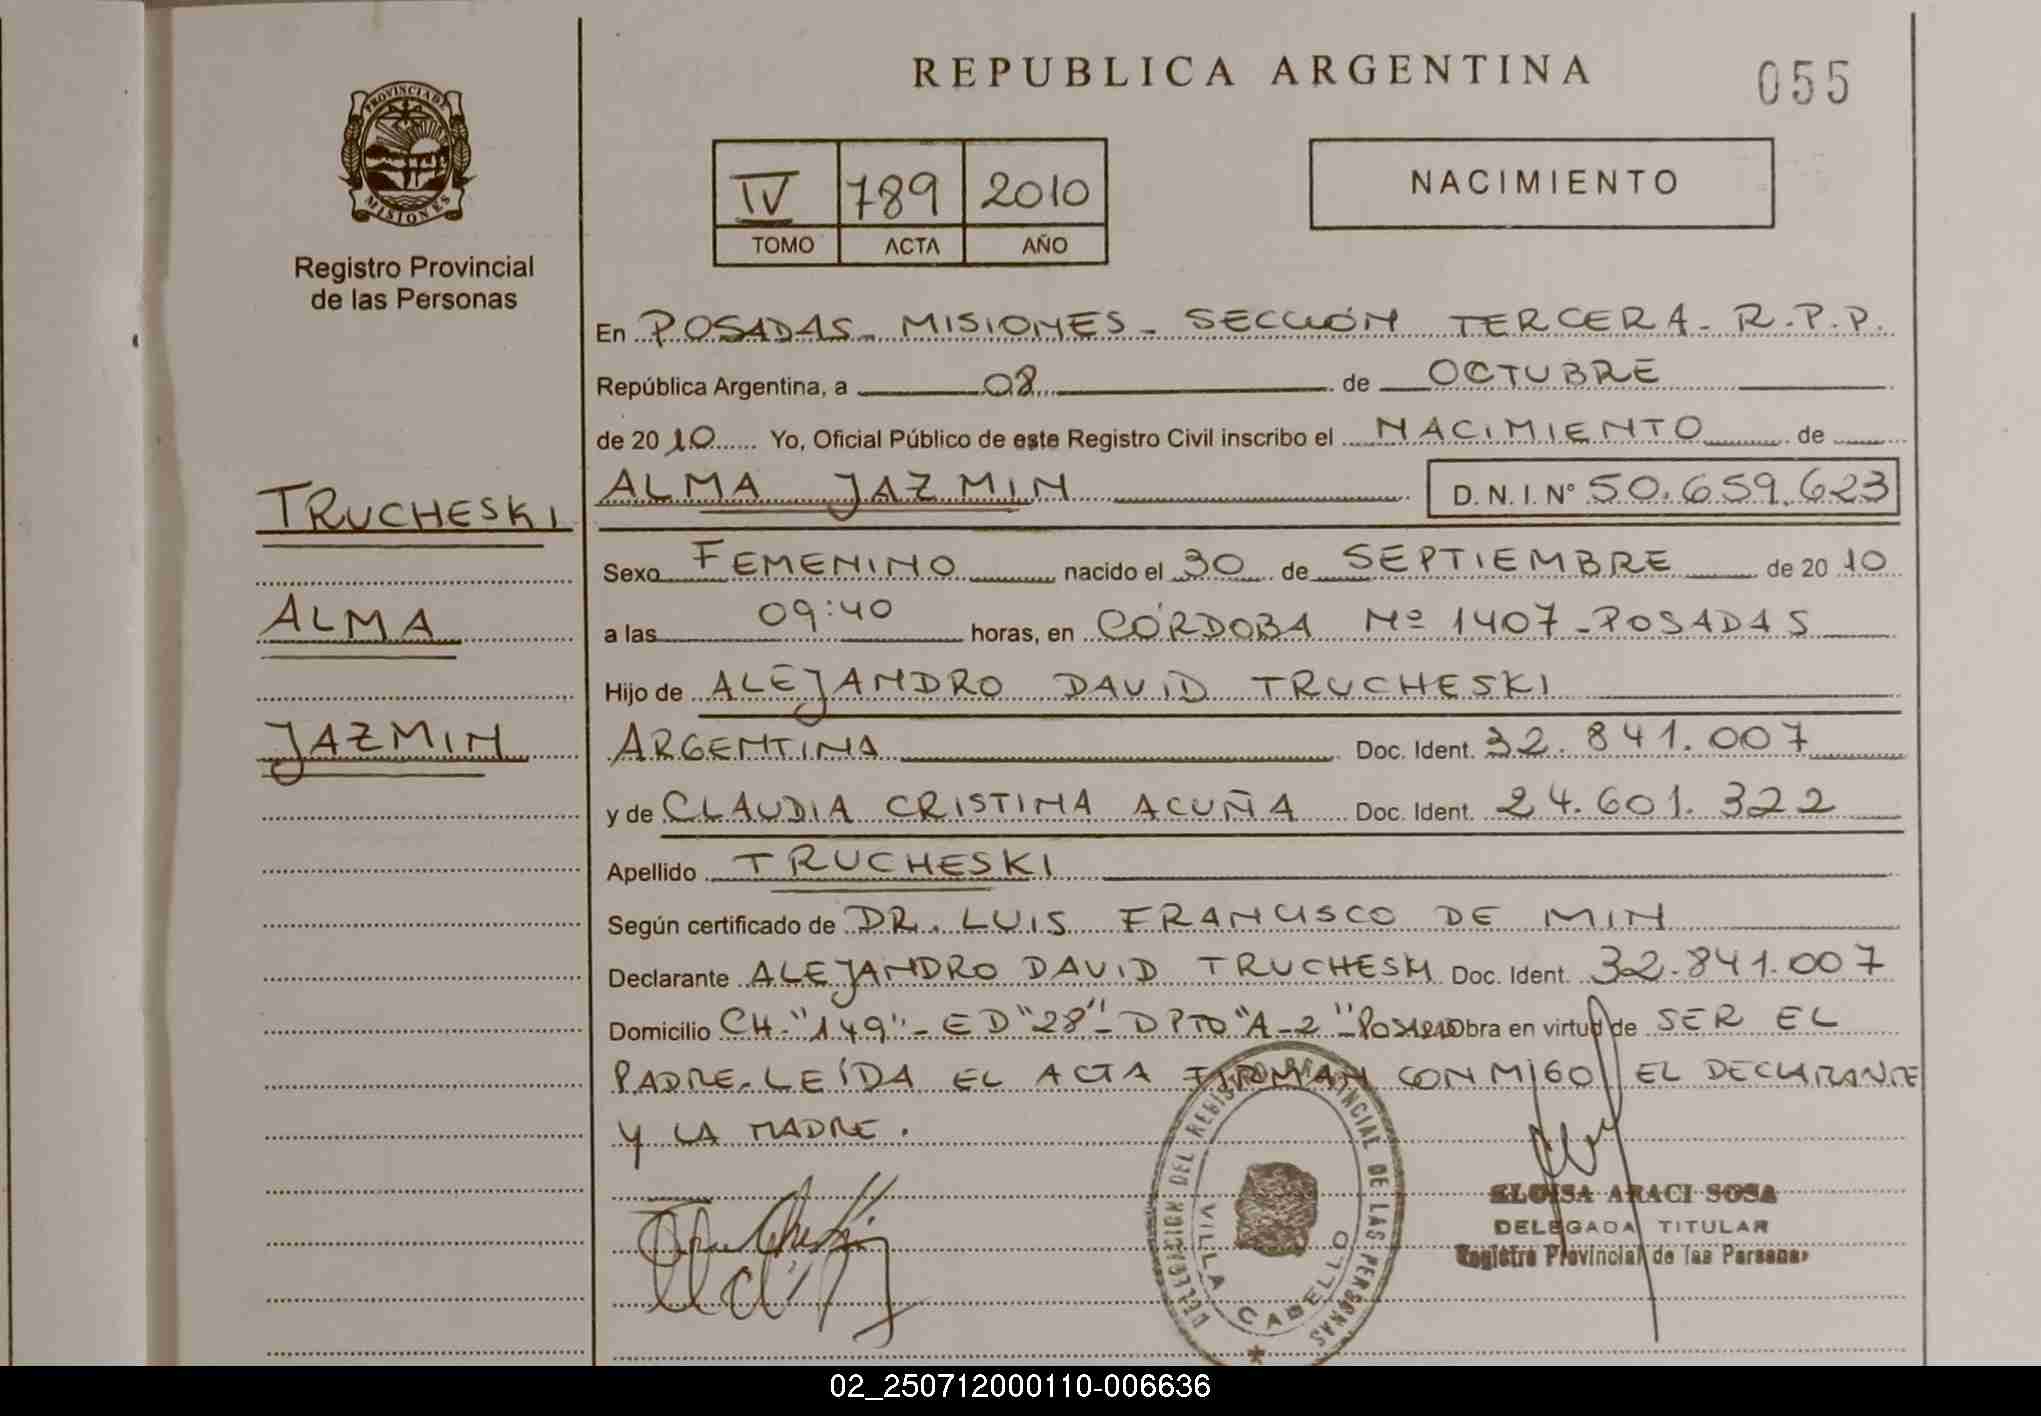 REPUBLICA ARGENTINA
055
PROVINCIA DE
MISIONES
Registro Provincial
de las Personas
IV 789 2010
TOMO ACTA AÑO
NACIMIENTO
En POSADAS - MISIONES - SECCIÓN TERCERA - R.P.P.
República Argentina, a 08 de OCTUBRE
de 2010 Yo, Oficial Público de este Registro Civil inscribo el NACIMIENTO de
ALMA JAZMIN D.N.I. N° 50.659.623
TRUCHESKI
ALMA
JAZMIN
Sexo FEMENINO nacido el 30 de SEPTIEMBRE de 2010
a las 09:40 horas, en CÓRDOBA Nº 1407 - POSADAS
Hijo de ALEJANDRO DAVID TRUCHESKI
ARGENTINA Doc. Ident. 32.841.007
y de CLAUDIA CRISTINA ACUÑA Doc. Ident. 24.601.322
Apellido TRUCHESKI
Según certificado de DR. LUIS FRANCISCO DE MIN
Declarante ALEJANDRO DAVID TRUCHESKI Doc. Ident. 32.841.007
Domicilio CH-"149"- ED "28"- DPTO "A-2"- Posadas Obra en virtud de SER EL
PADRE. LEÍDA EL ACTA FIRMAN CONMIGO EL DECLARANTE
Y LA MADRE.
DELEGACION DEL REGISTRO PROVINCIAL DE LAS PERSONAS
VILLA CABELLO
ELOISA ARACI SOSA
DELEGADA TITULAR
Registro Provincial de las Personas
02_250712000110-006636